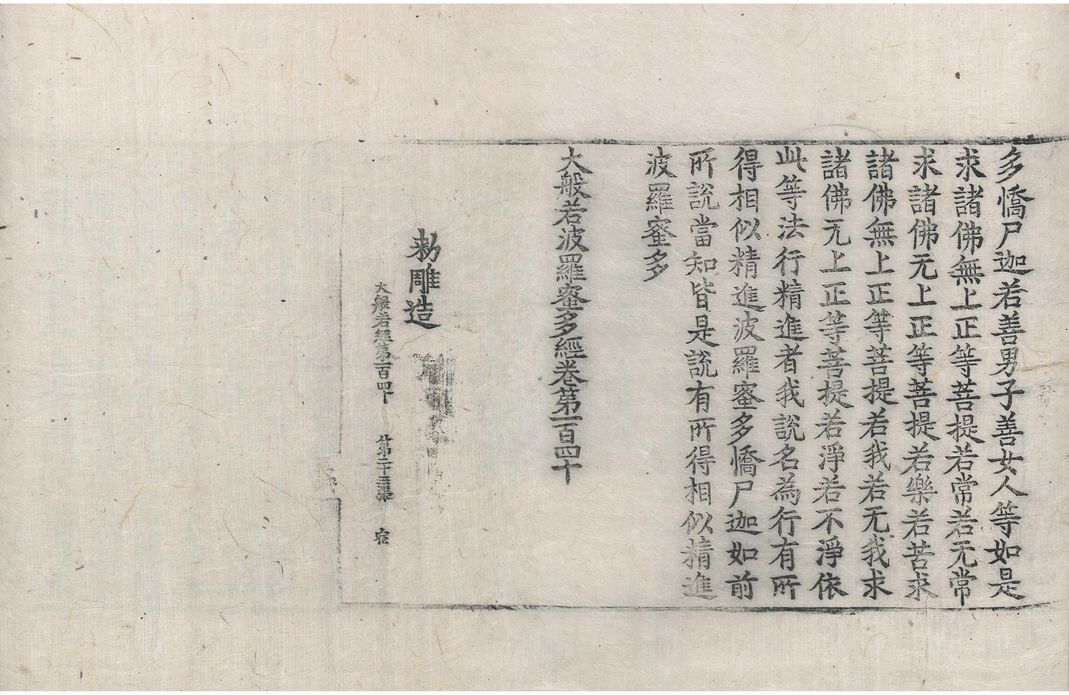 多憍尸迦若善男子善女人等如是
求諸佛無上正等菩提若常若无常
求諸佛无上正等菩提若樂若苦求
諸佛無上正等菩提若我若无我求
諸佛无上正等菩提若淨若不淨依
此等法行精進者我說名為行有所
得相似精進波羅蜜多憍尸迦如前
所說當知皆是說有所得相似精進
波羅蜜多
大般若波羅蜜多經卷第一百四十
勑雕造
大般若經第一百四十 第二十三張 宿